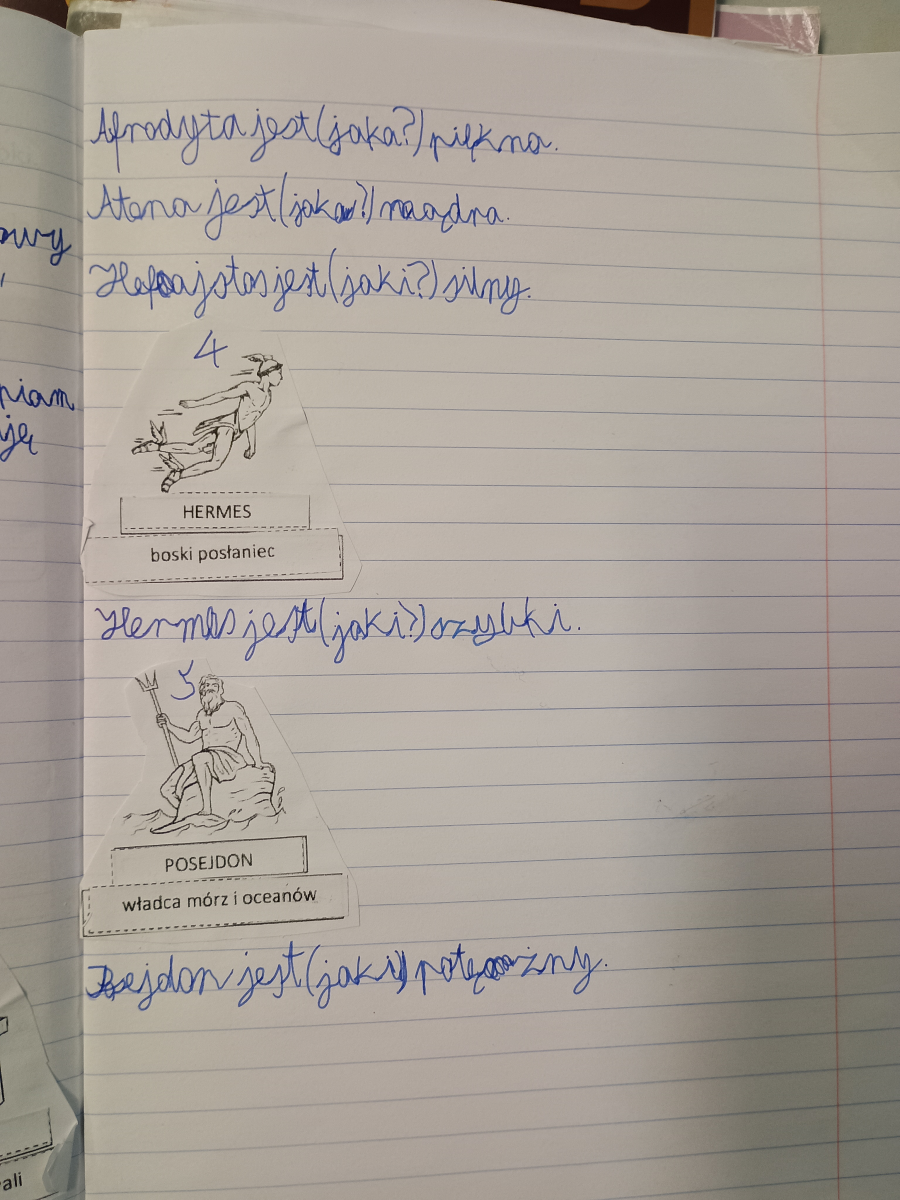 owy
piam
ję
Afrodyta jest (jaka?) piękna.
Atena jest (jaka?) mądra.
Hefajstos jest (jaki?) silny.
4
HERMES
boski posłaniec
Hermes jest (jaki?) szybki.
5
POSEJDON
władca mórz i oceanów
Posejdon jest (jaki) potężny.
ali